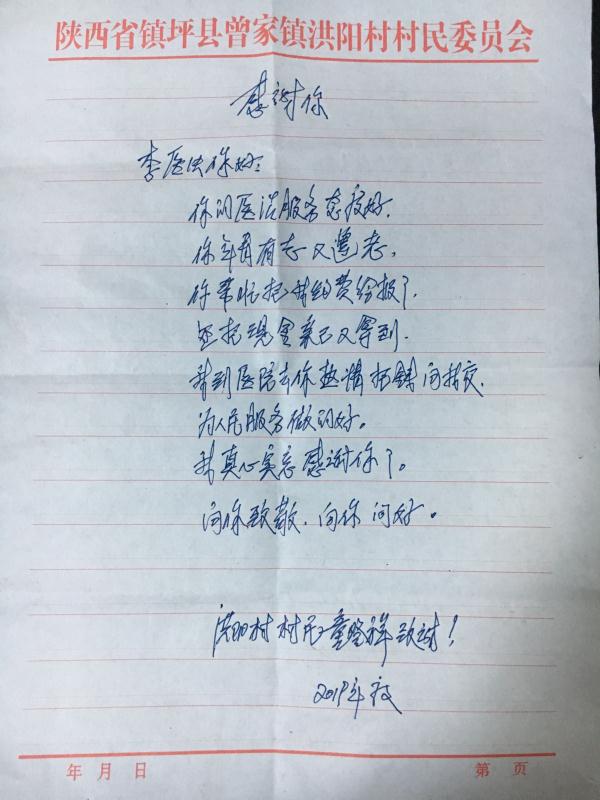 陕西省镇坪县曾家镇洪阳村村民委员会
感谢你
李医生你好:
你的医治服务态度好.
你年青有志又
你帮忙把我的费给报了.
还把现金亲己又拿到.
我到医院去你热情把我
为人民服务做的好。
我真心实意感谢你了。
向你致敬.向你问好。
洪阳村村民童 祥致谢!
2019年
年 月 日
第 页